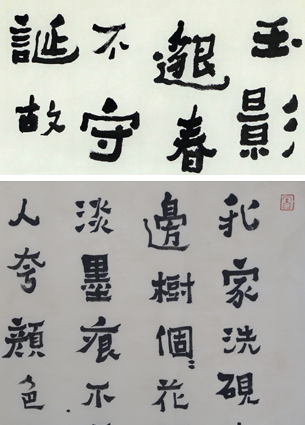 玉影
春
不守
誕故
我家洗硯
邊樹個〻花
淡墨痕不
人夸顏色